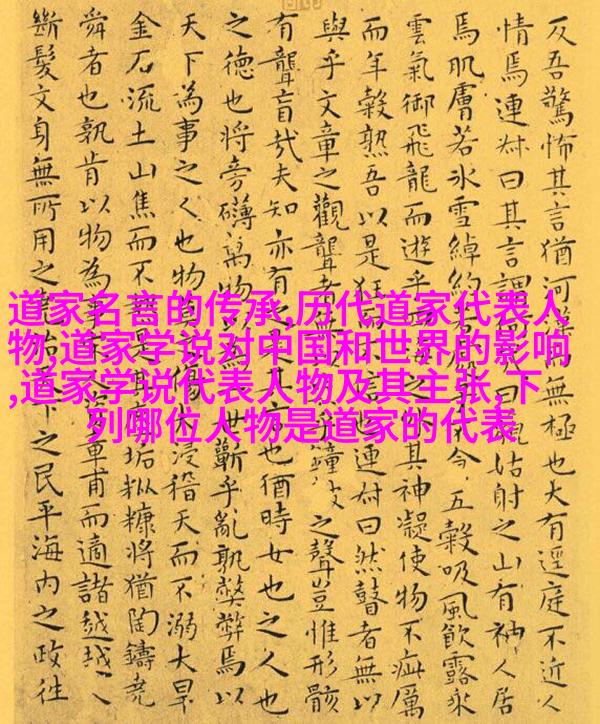 道家名言的传承,历代道家代表人
物,道家学说对中国和世界的影响
,道家学说代表人物及其主张,下
列哪位人物是道家的代表
反吾驚怖其言猶河漢無極也大有逕庭不近人
情焉連叔曰其言謂曰姑射之山有神人居
焉肌膚若冰雪綽約若五穀吸風飲露乘
雲氣御飛龍而遊乎之其神凝使物不疵厲
而年穀熟吾以是狂言也連叔曰然瞽者無以
與乎文章之觀聾者無乎鐘之聲豈惟形骸
有聾盲哉夫知亦有之其言也猶時女也之人也
之德也將旁礴萬物以世蘄乎亂孰弊弊焉以
天下為事之人也物莫之傷大浸稽天而不溺大旱
金石流土山焦而不是其垢粃糠將猶陶鑄堯
舜者也孰肯以物為事章甫而適諸越越人
斷髮文身無所用之堯治天下之民平海內之政往